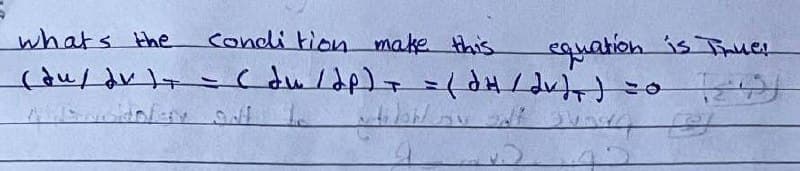 whats the condition make this equation is True!
(du/dv)T = (du/dp)T = (dH/dv)T) = 0